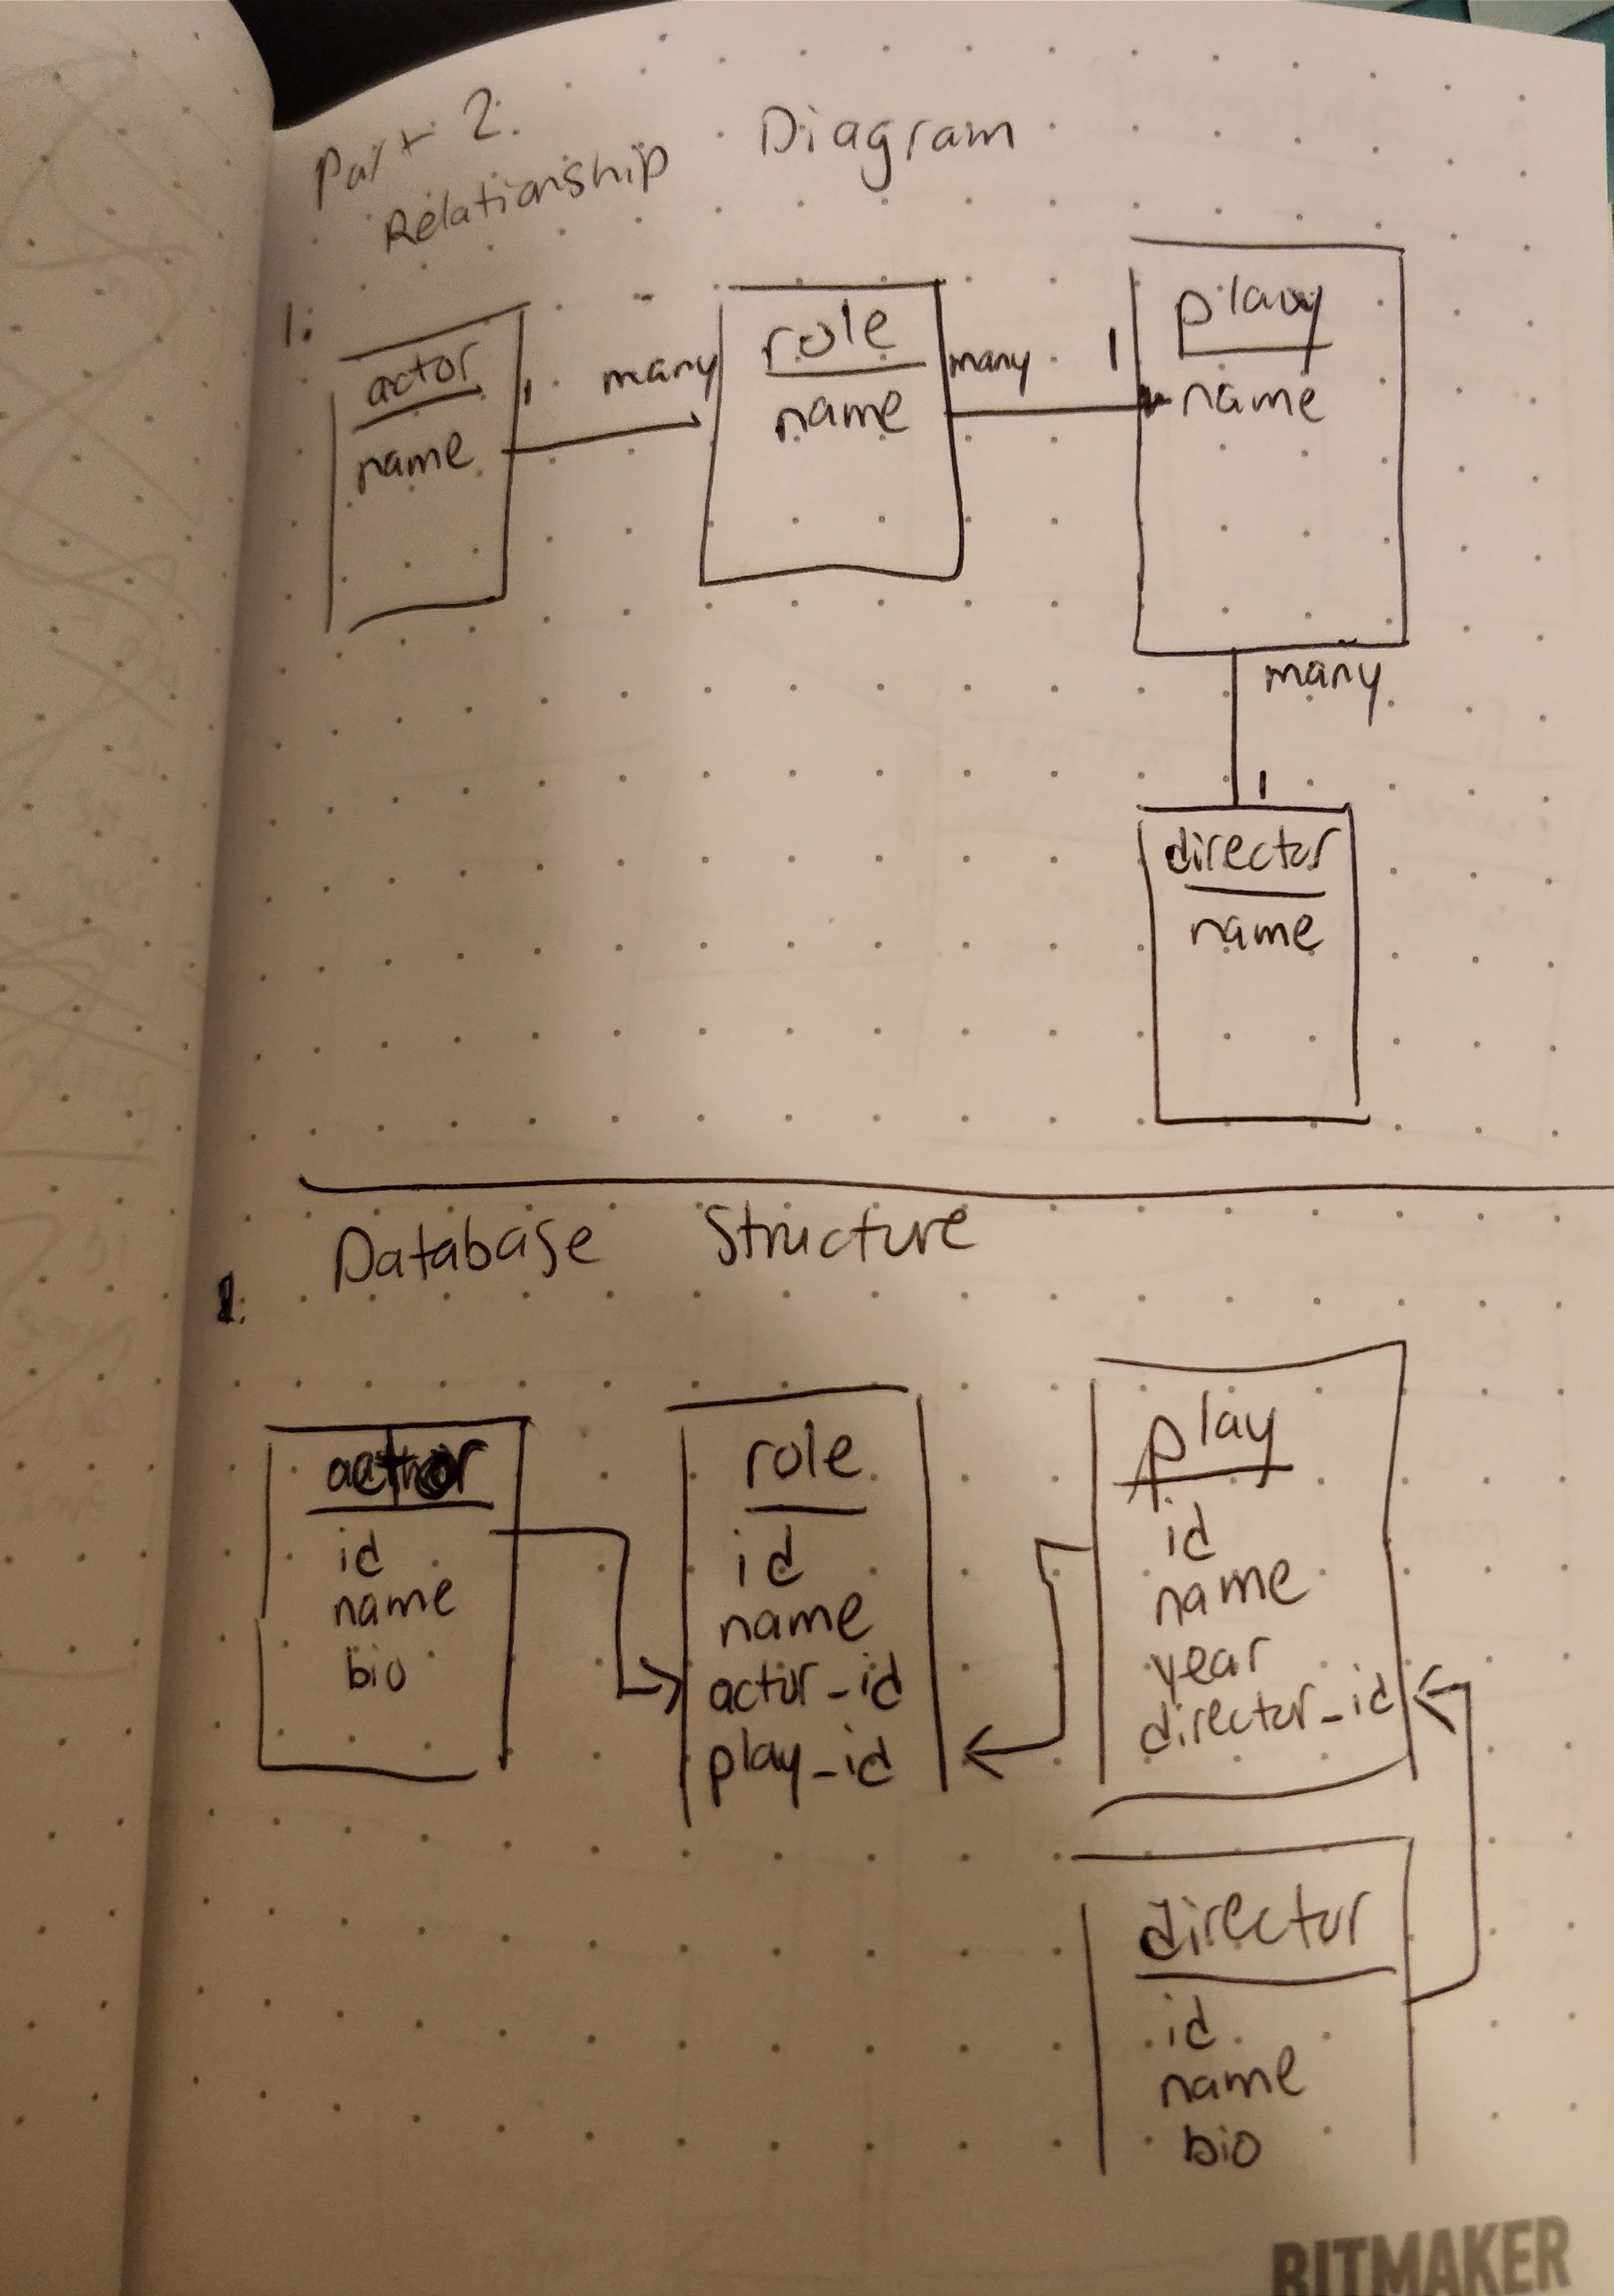 Part 2.
Relationship Diagram
1.
actor
name
1 many
role
name
many 1
play
name
many
1
director
name
Database Structure
1.
actor
id
name
bio
role
id
name
actor_id
play_id
play
id
name
year
director_id
director
id
name
bio
BITMAKER